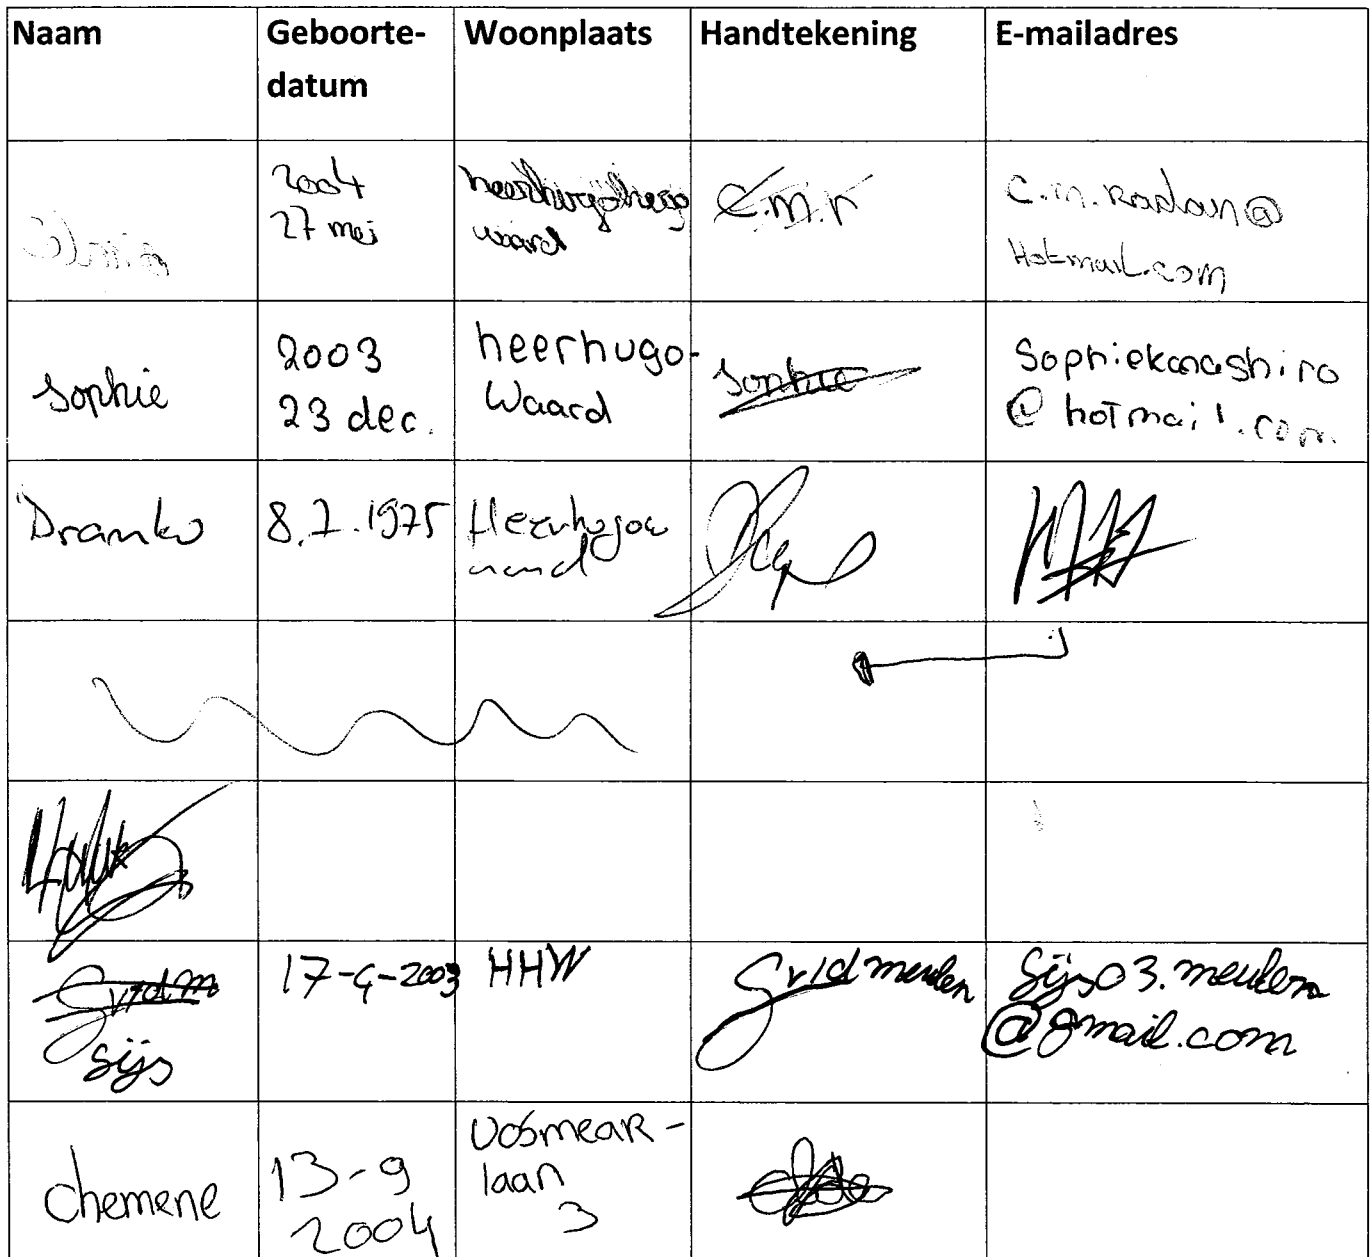 Naam
Geboorte-
datum
Woonplaats
Handtekening
E-mailadres
2004
27 mei
waard
C.m.r
C.m.Radoun@
Hotmail.com
Sophie
2003
23 dec.
heerhugo-
Waard
Sophie
Sophiekanashiro
@hotmail.com
Dranko
8.7.1975
17-4-2003
HHW
Gvidmeulen
Gijs03.meulen
@gmail.com
Gijs
Chemene
13-9
2004
Vosmear-
laan
3